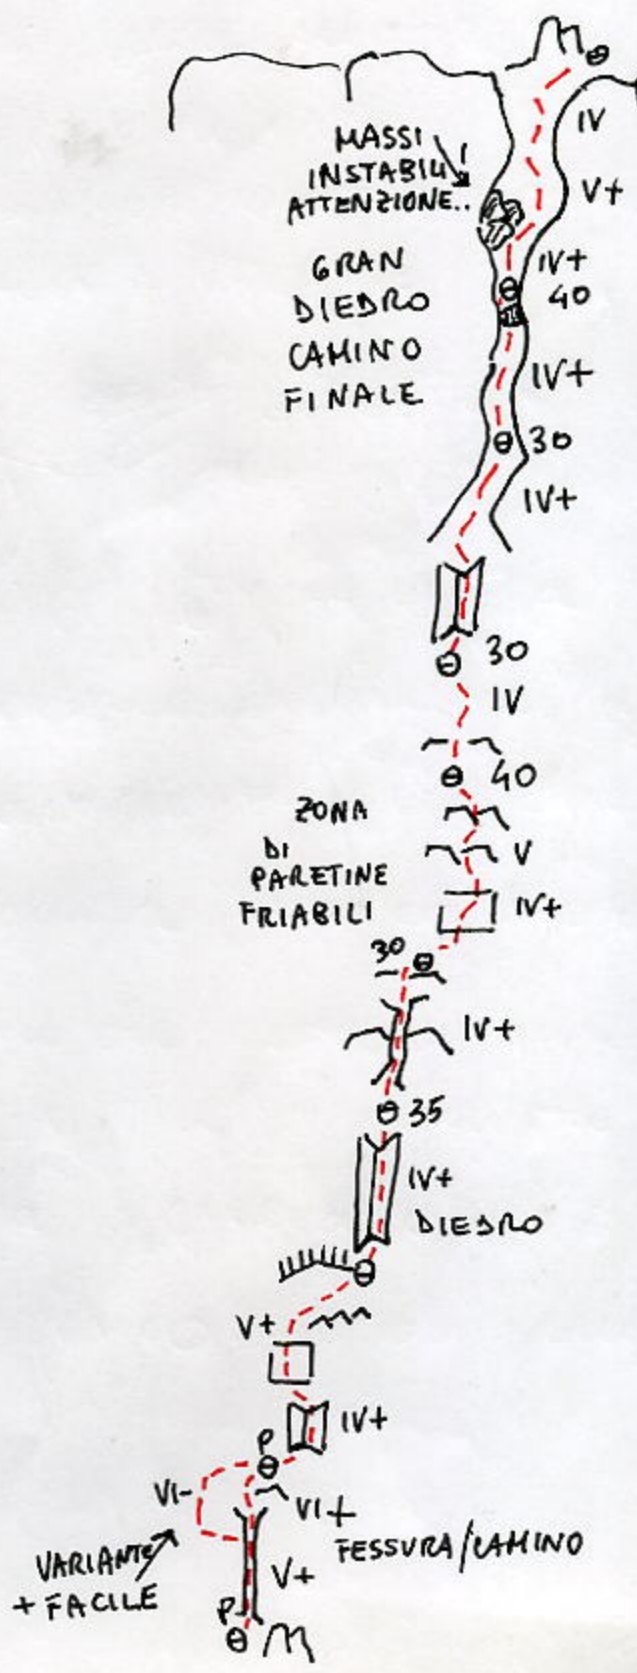 IV
MASSI
INSTABILI
ATTENZIONE..
V+
IV+
40
GRAN
DIEDRO
CAMINO
FINALE
IV+
30
IV+
30
IV
40
ZONA
DI
PARETINE
FRIABILI
V
IV+
30
IV+
35
IV+
DIEDRO
V+
IV+
P
VI-
VI+
FESSURA/CAMINO
VARIANTE
+ FACILE
V+
P